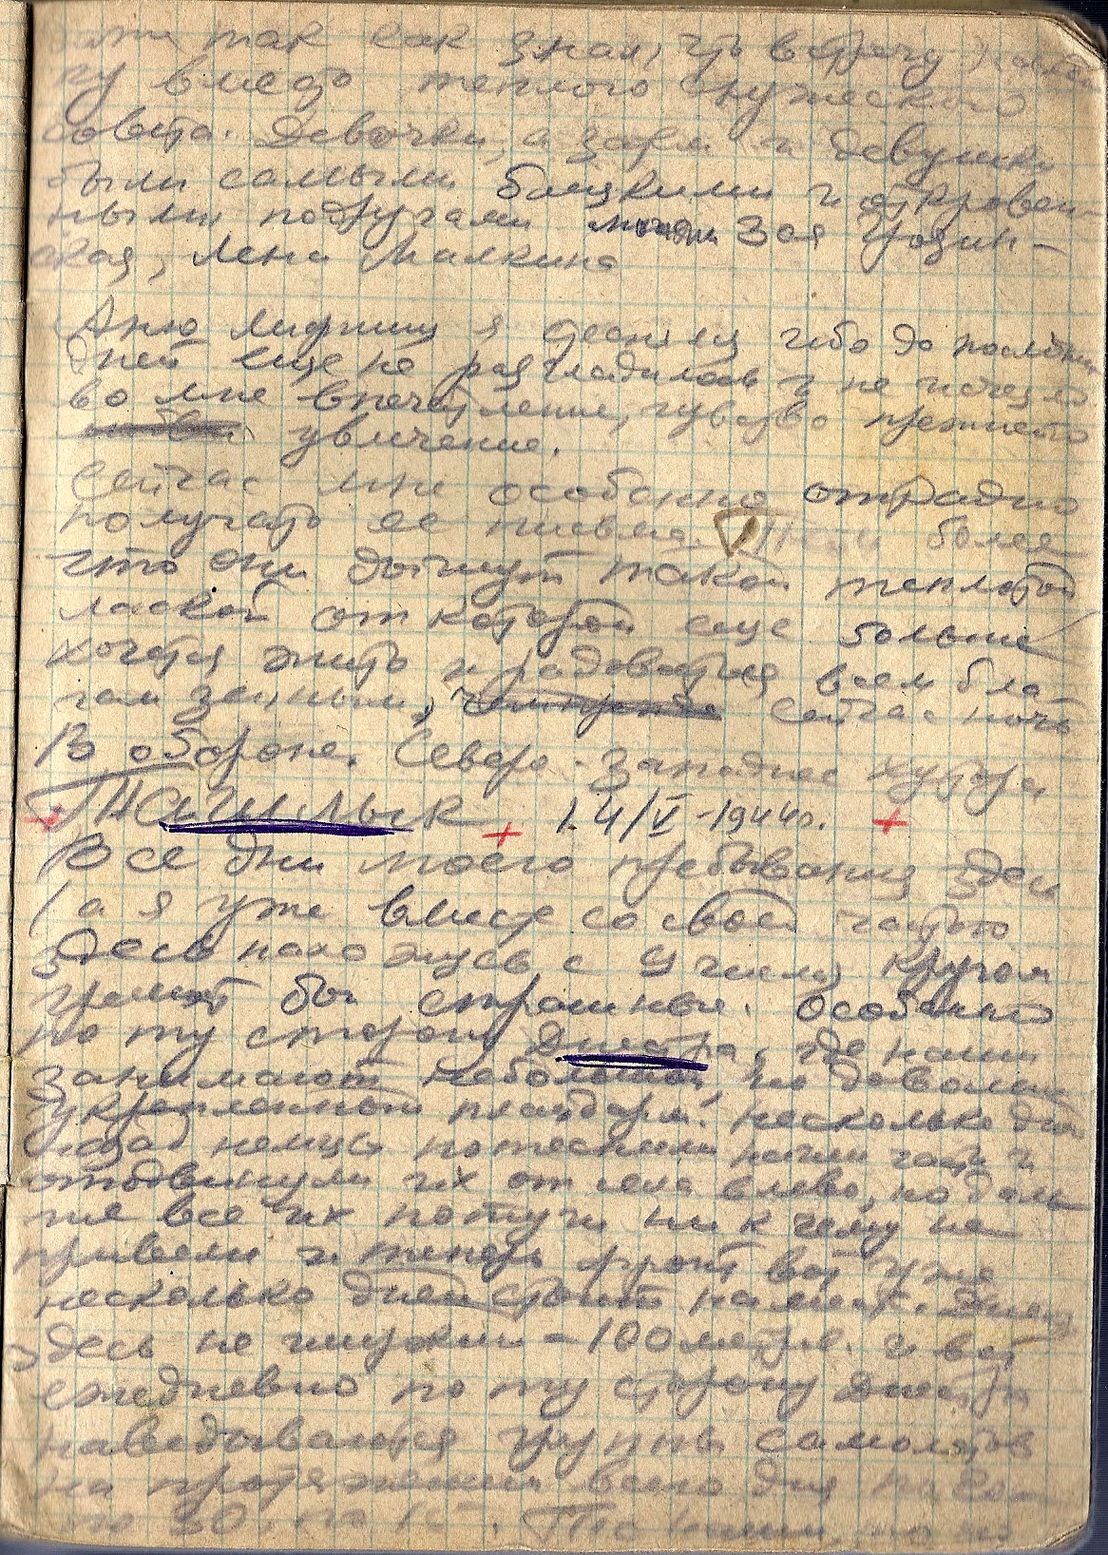 так как знал, что встречу
ну вместо теплого дружеского
совета. Девочки, а затем и девушки
были самыми близкими и откровен-
ными подругами Зоя
ская, Лена Малкина
Аню Лифшиц я ибо до последних
дней еще не разгладилось и не исчезло
во мне впечатление, чувство прежнего
увлечение.
Сейчас мне особенно отрадно
получать ее письма. Тем более
что они дышут такой теплотой
лаской от которой еще больше
хочется жить и радоваться всем бла-
гам земным, сейчас ночь
В обороне. Северо-западнее хутора
Ташлык 14/V-1944г.
Все дни моего пребывания здесь
(а я уже вместе со своей частью
здесь нахожусь с 9 числа) кругом
гремят бои страшные. Особенно
по ту сторону Днестра, где наши
занимают небольшой, но довольно
укрепленный плацдарм. Несколько дней
назад немцы потеснили наши части и
отодвинули их от села влево, но даль
ше все их потуги ни к чему не
привели и теперь фронт вот уже
несколько дней стоит на месте. Днестр
здесь не широкий - 100 метров. и вот
ежедневно по ту сторону Днестра
наведываются группы самолетов
на протяжении всего дня
30, по То наши, то